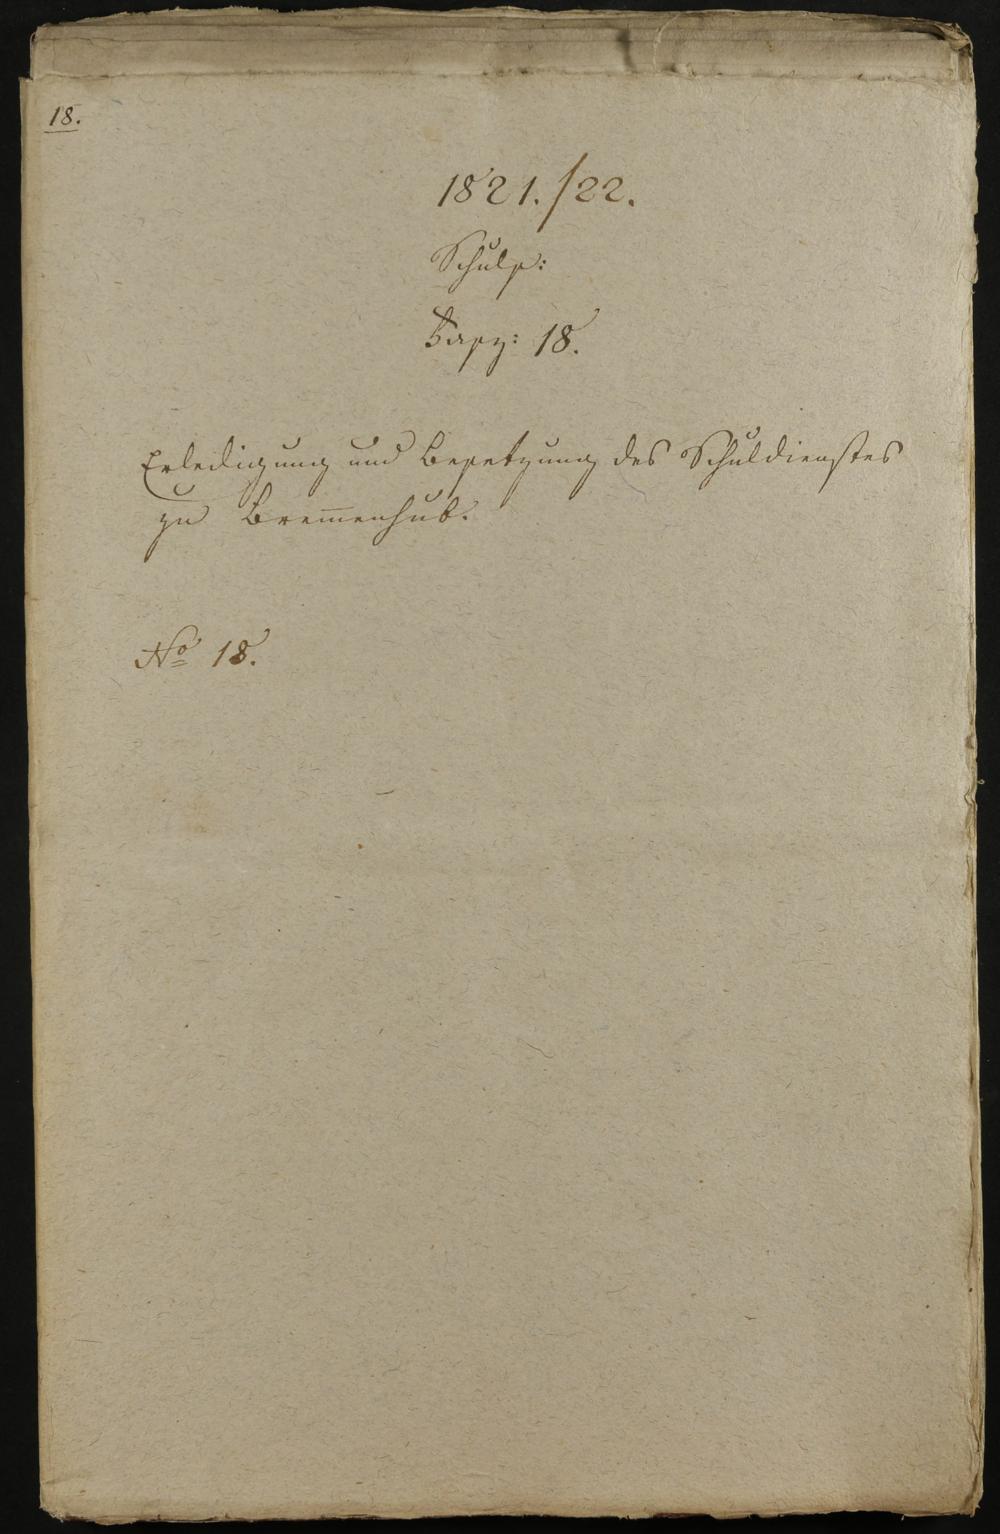 18.
1821./22.
Schuls:
Fasz: 18.
Erledigung und Besetzung des Schuldienstes
zu Bremenhub.
No 18.